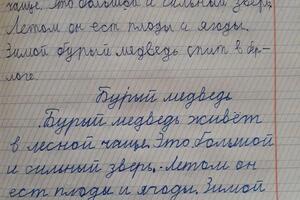 чаще. Это большой и сильный зверь.
Летом он ест плоды и ягоды.
Зимой бурый медведь спит в бер-
логе.
Бурый медведь
Бурый медведь живёт
в лесной чаще. Это большой
и сильный зверь. Летом он
ест плоды и ягоды. Зимой